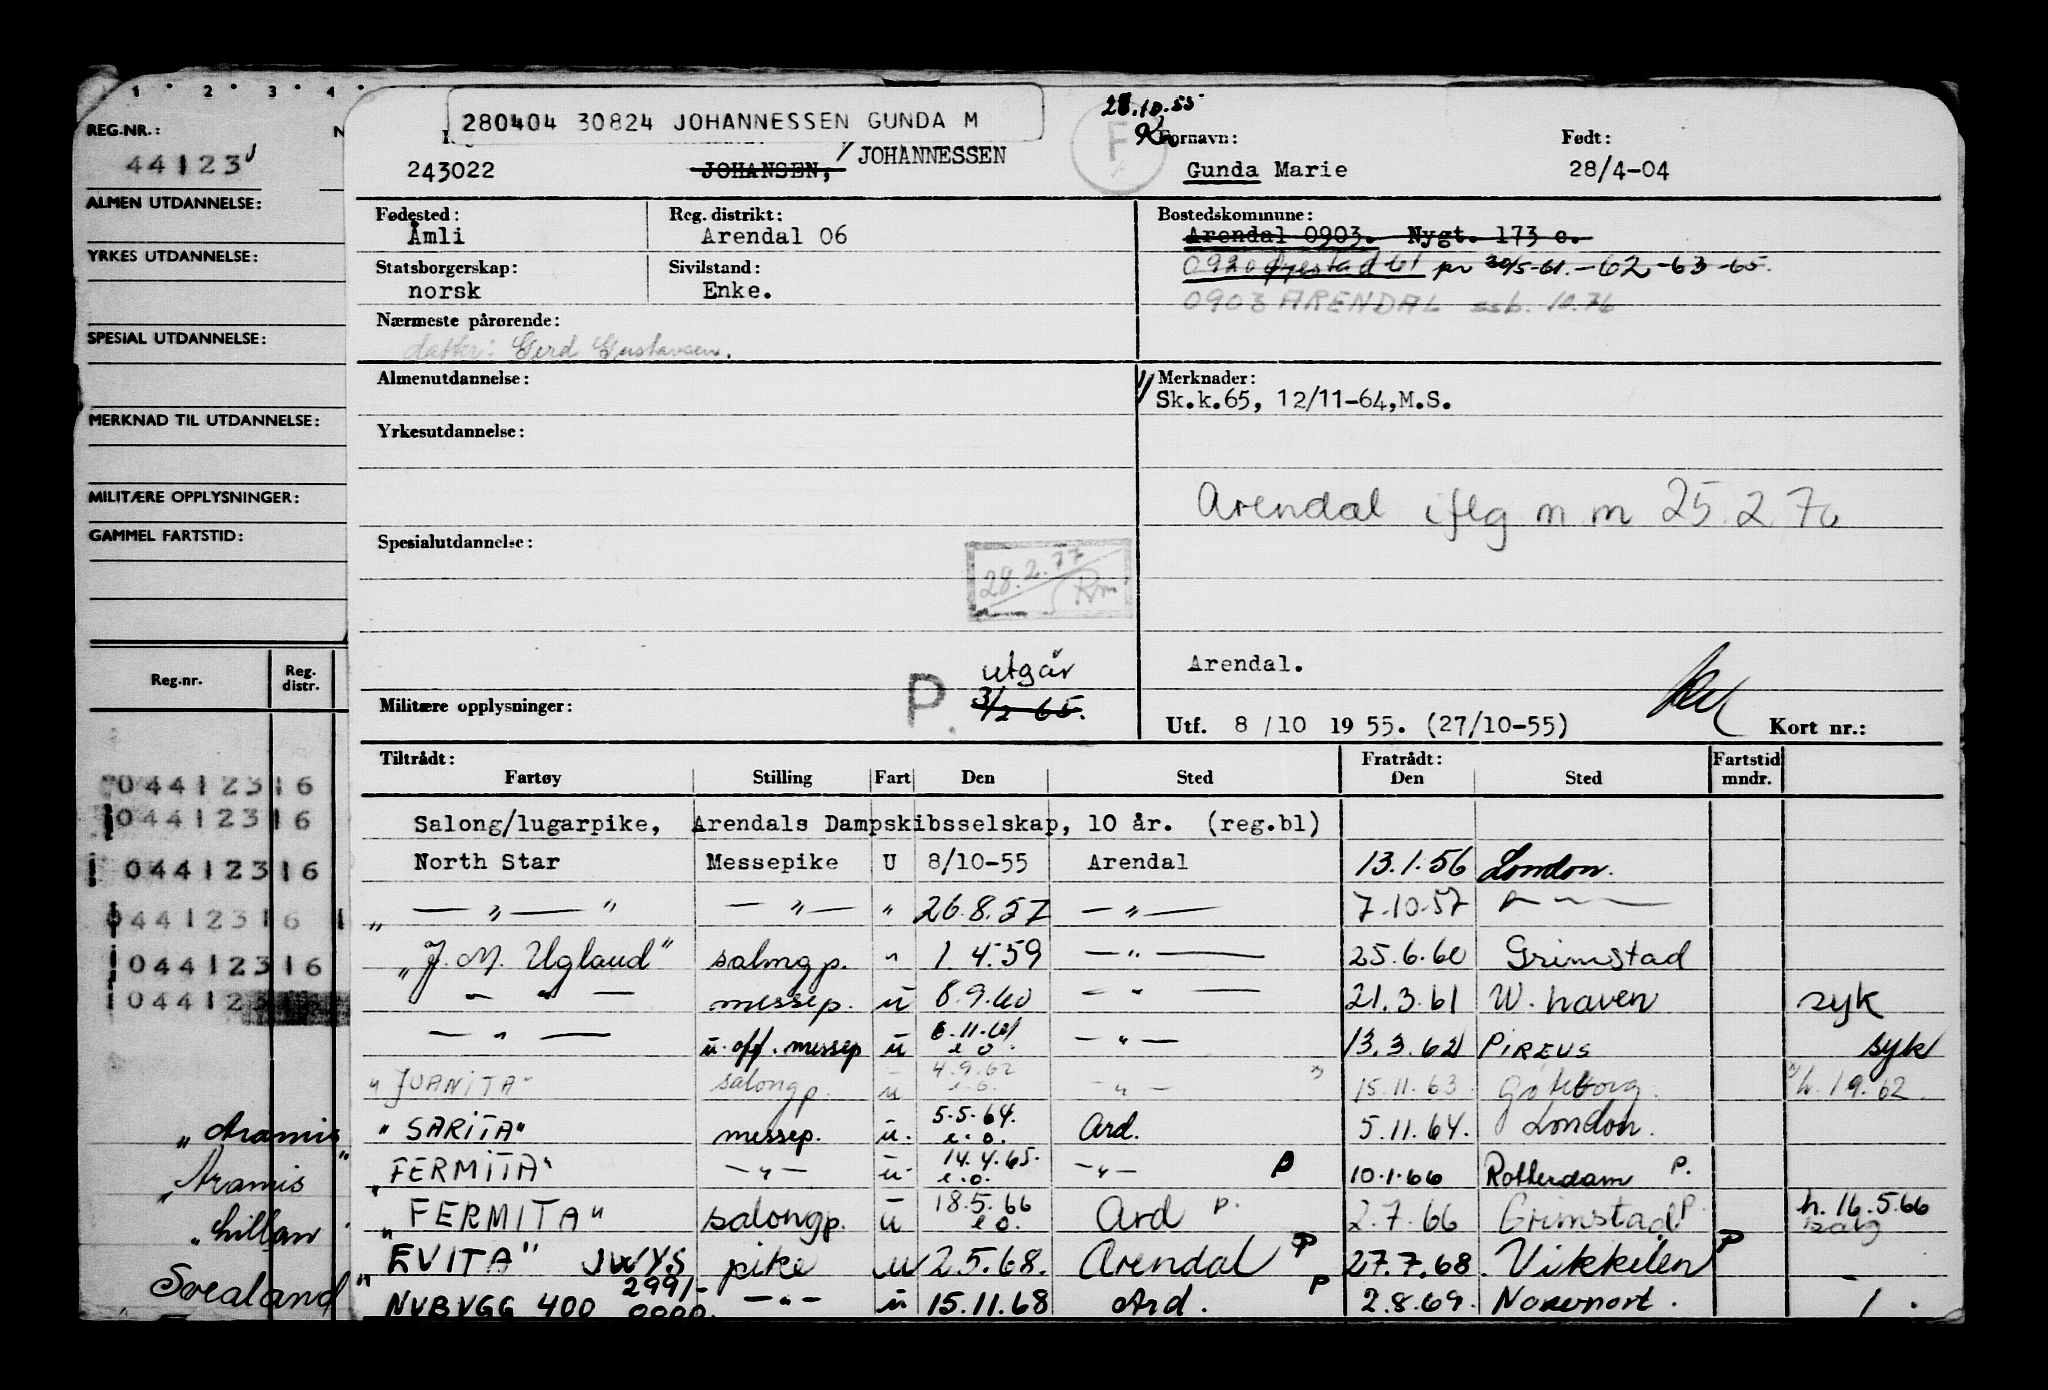 1 2 3 4
REG.NR.: N
44123
ALMEN UTDANNELSE:
YRKES UTDANNELSE:
SPESIAL UTDANNELSE:
MERKNAD TIL UTDANNELSE:
MILITÆRE OPPLYSNINGER:
GAMMEL FARTSTID:
Reg.nr. Reg. distr.
044123 16
044123 16
044123 16
044123 16
044123 16
044123
"Aramis
"Aramis"
"Lillan"
Svealand
280404 30824 JOHANNESSEN GUNDA M
28.10.55
F
Fornavn: Født:
243022 JOHANSEN, JOHANNESSEN Gunda Marie 28/4-04
Fødested: Reg. distrikt: Bostedskommune:
Åmli Arendal 06 Arendal 0903. Nygt. 173 c.
Statsborgerskap: Sivilstand: 0920 Øyestad 61 pr 30/5-61.-62-63-65.
norsk Enke.
0903 ARENDAL ssb. 10.76
Nærmeste pårørende:
datter: Gerd Gustavsen.
Almenutdannelse: 1/ Merknader:
Sk.k.65, 12/11-64,M.S.
Yrkesutdannelse:
Arendal iflg m m 25.2.70
Spesialutdannelse:
28.2.77
Arendal.
utgår
P. 3/2 65.
Militære opplysninger: Utf. 8/10 1955. (27/10-55) Kort nr.:
Tiltrådt: Fratrådt: Fartstid
Fartøy Stilling Fart Den Sted Den Sted mndr.
Salong/lugarpike, Arendals Dampskibsselskap, 10 år. (reg.bl)
North Star Messepike U 8/10-55 Arendal 13.1.56 London.
" — " — " — " — " 26.8.57 — " — 7.10.57 — " —
"J. M. Ugland" salongp. " 1.4.59 — " — 25.6.60 Grimstad
— " — messep. u 8.9.60 — " — 21.3.61 W. haven syk
— " — u.off. messep u 6.11.61 e.o. — " — 13.3.62 PIREUS syk
"JUANITA" salongp. u 4.9.62 e.o. — " — 15.11.63 Gøteborg. h. 1.9.62.
"SARITA" messep. u. 5.5.64. e.o. Ard. 5.11.64. London.
"FERMITA" — " — u. 14.4.65. e.o. — " — P 10.1.66 Rotterdam P.
"FERMITA" salongp. u 18.5.66 e.o. Ard P. 2.7.66 Grimstad P. h. 16.5.66 salg
"EVITA" JWYS pike u 2.5.68. Arendal P 27.7.68. Vikkilen P
2991/-
"NYBYGG 400 0000. — " — u 15.11.68 Ard. P 2.8.69.